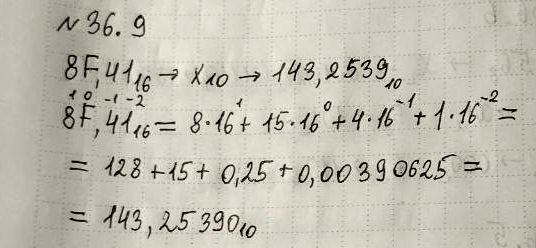 № 36.9
8F,41₁₆ → X10 → 143,2539₁₀
1 0 -1 -2
8F,41₁₆ = 8·16¹ + 15·16⁰ + 4·16⁻¹ + 1·16⁻² =
= 128 + 15 + 0,25 + 0,00390625 =
= 143,25390₁₀